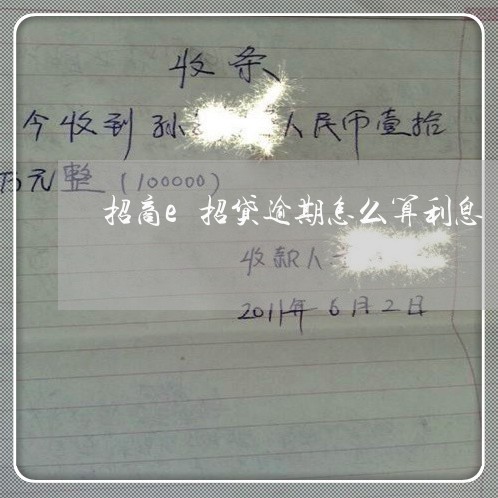 收条
今收到孙 人民币壹拾
万元整（100000）
招商e 招贷逾期怎么算利息
收款人
2011年6月2日